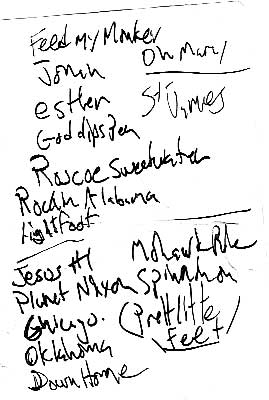 Feed my Monkey
Jonah
Oh Mary
esther
St James
God dips Pen
Roscoe Sweetwater
Rockin Alabama
Lightfoot
Jesus #1
Planet Nixon
Chicago.
Oklahoma
Down Home
Mohawk
Spinnin
Pretti little
Feet